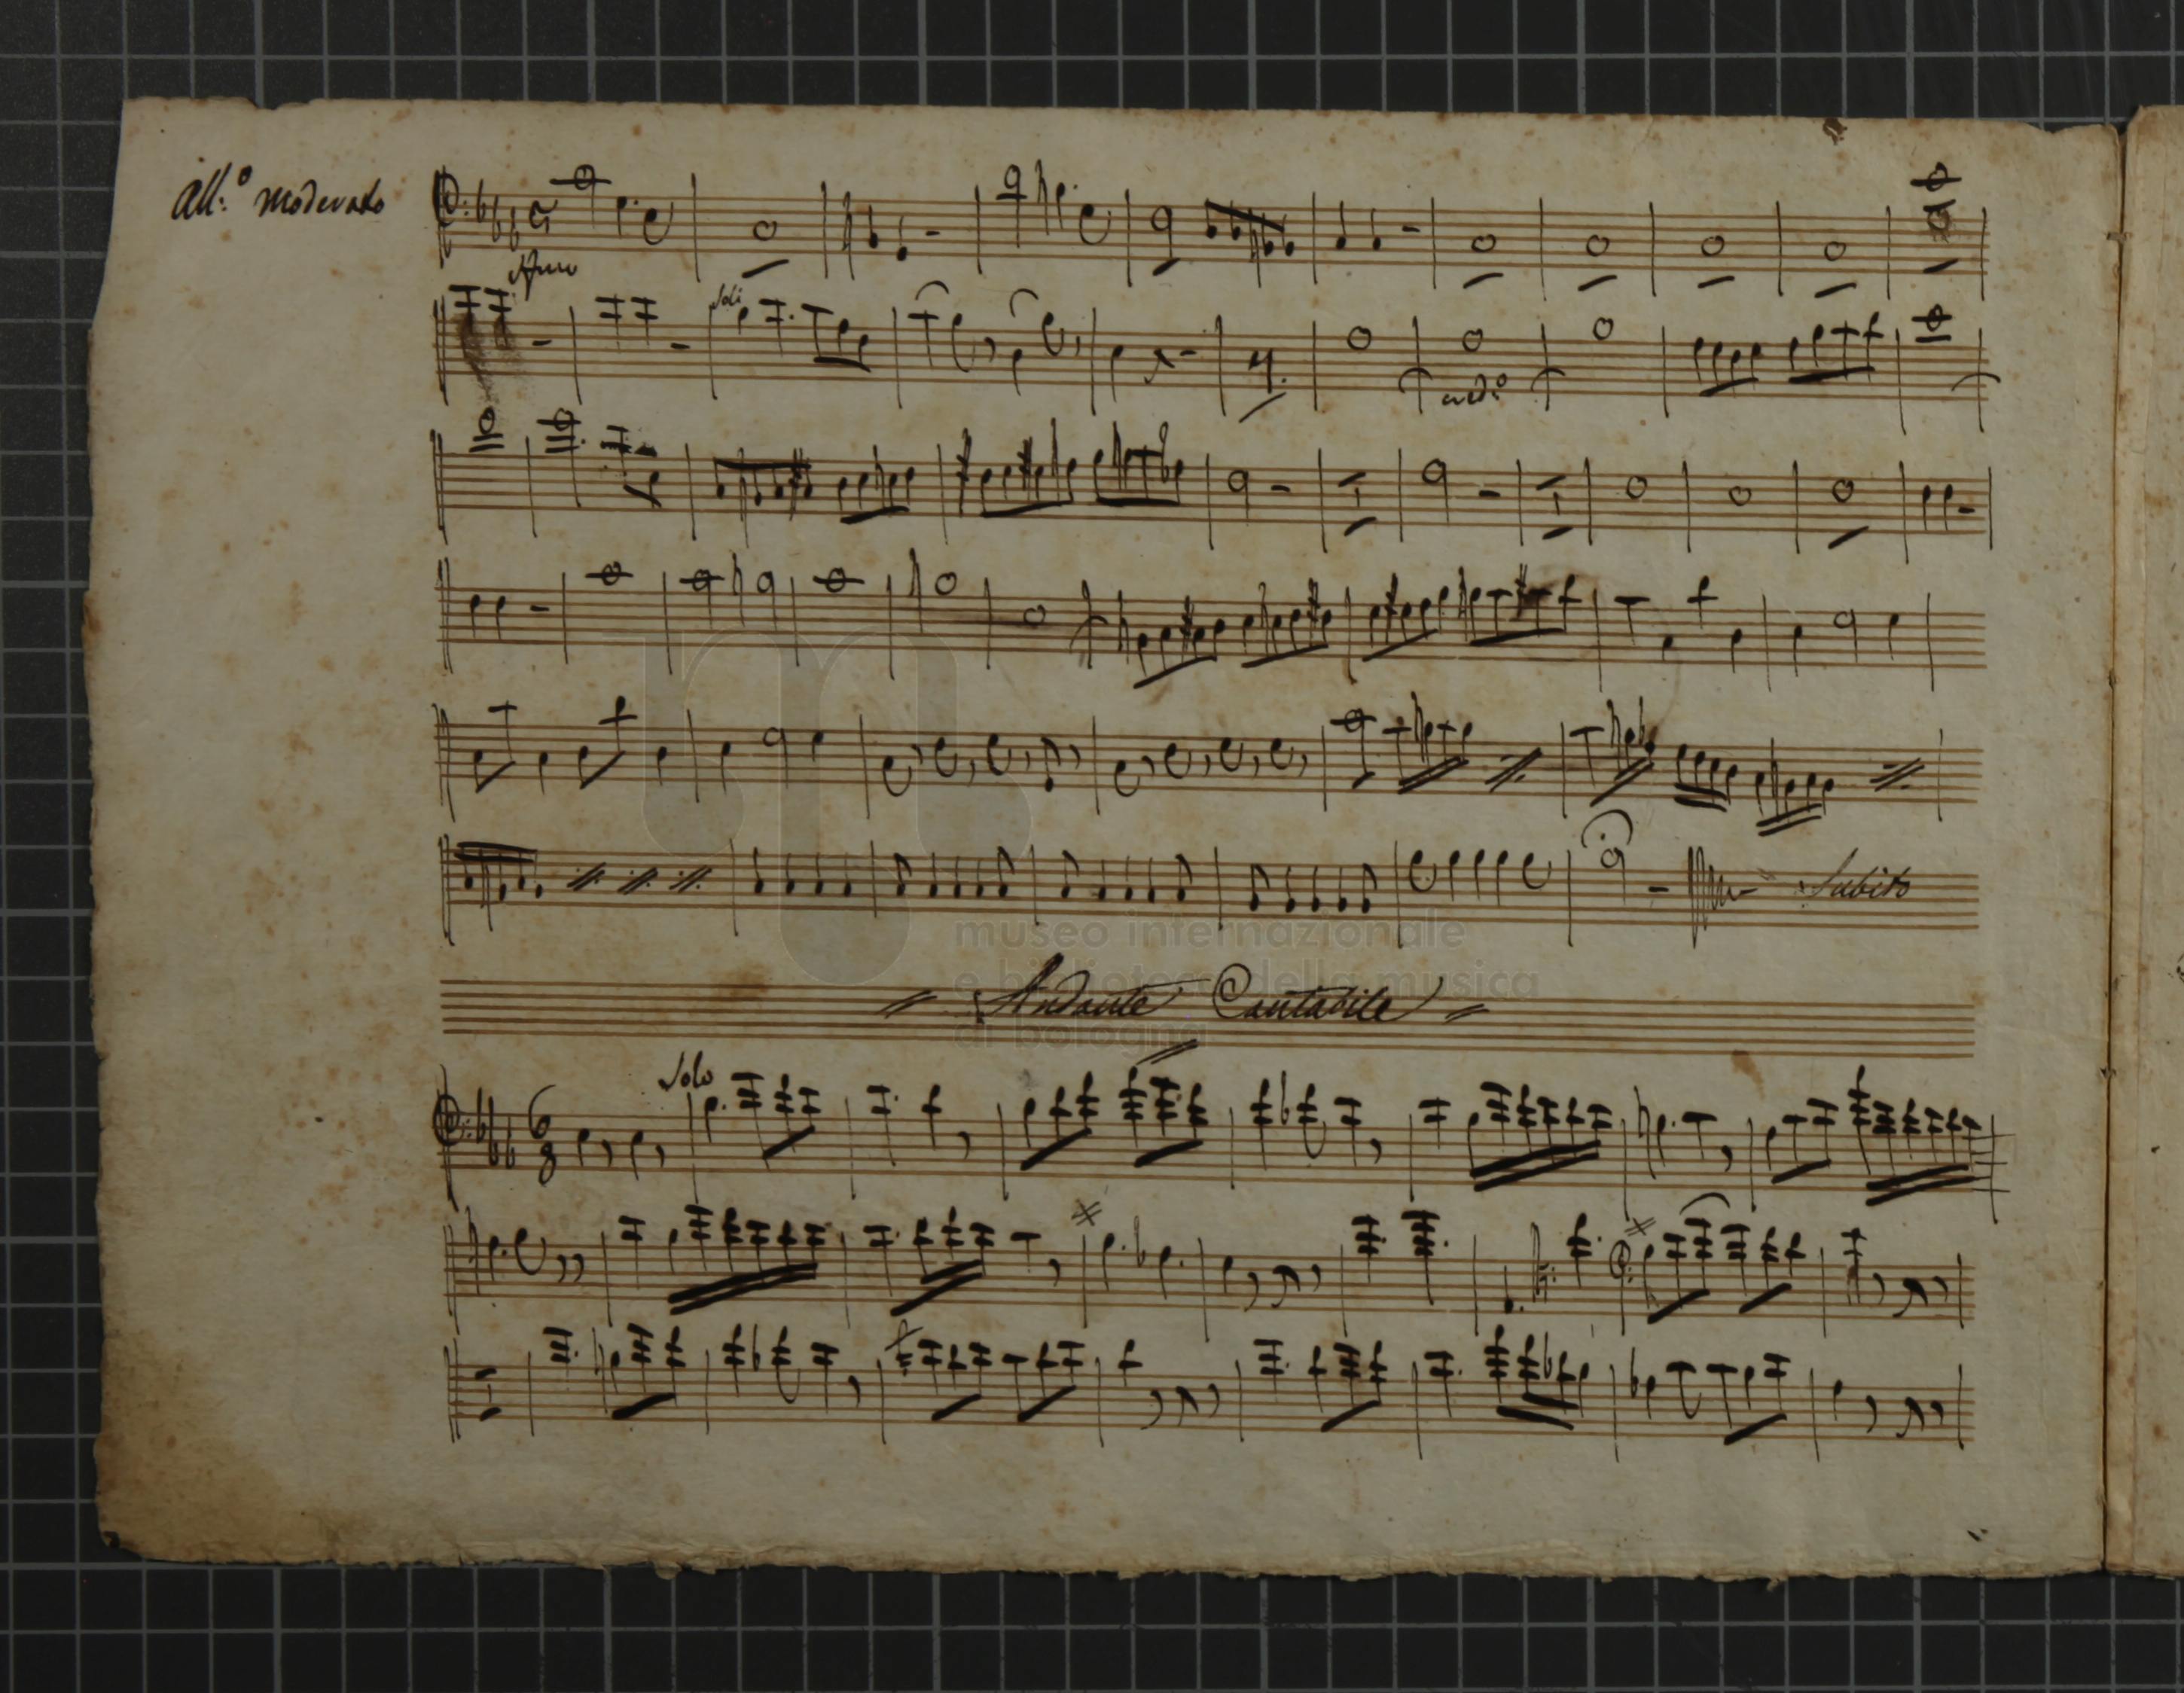 All:º moderato
Soli
Subito
Andante Cantabile
museo internazionale
e biblioteca della musica
di bologna
6
8
Solo